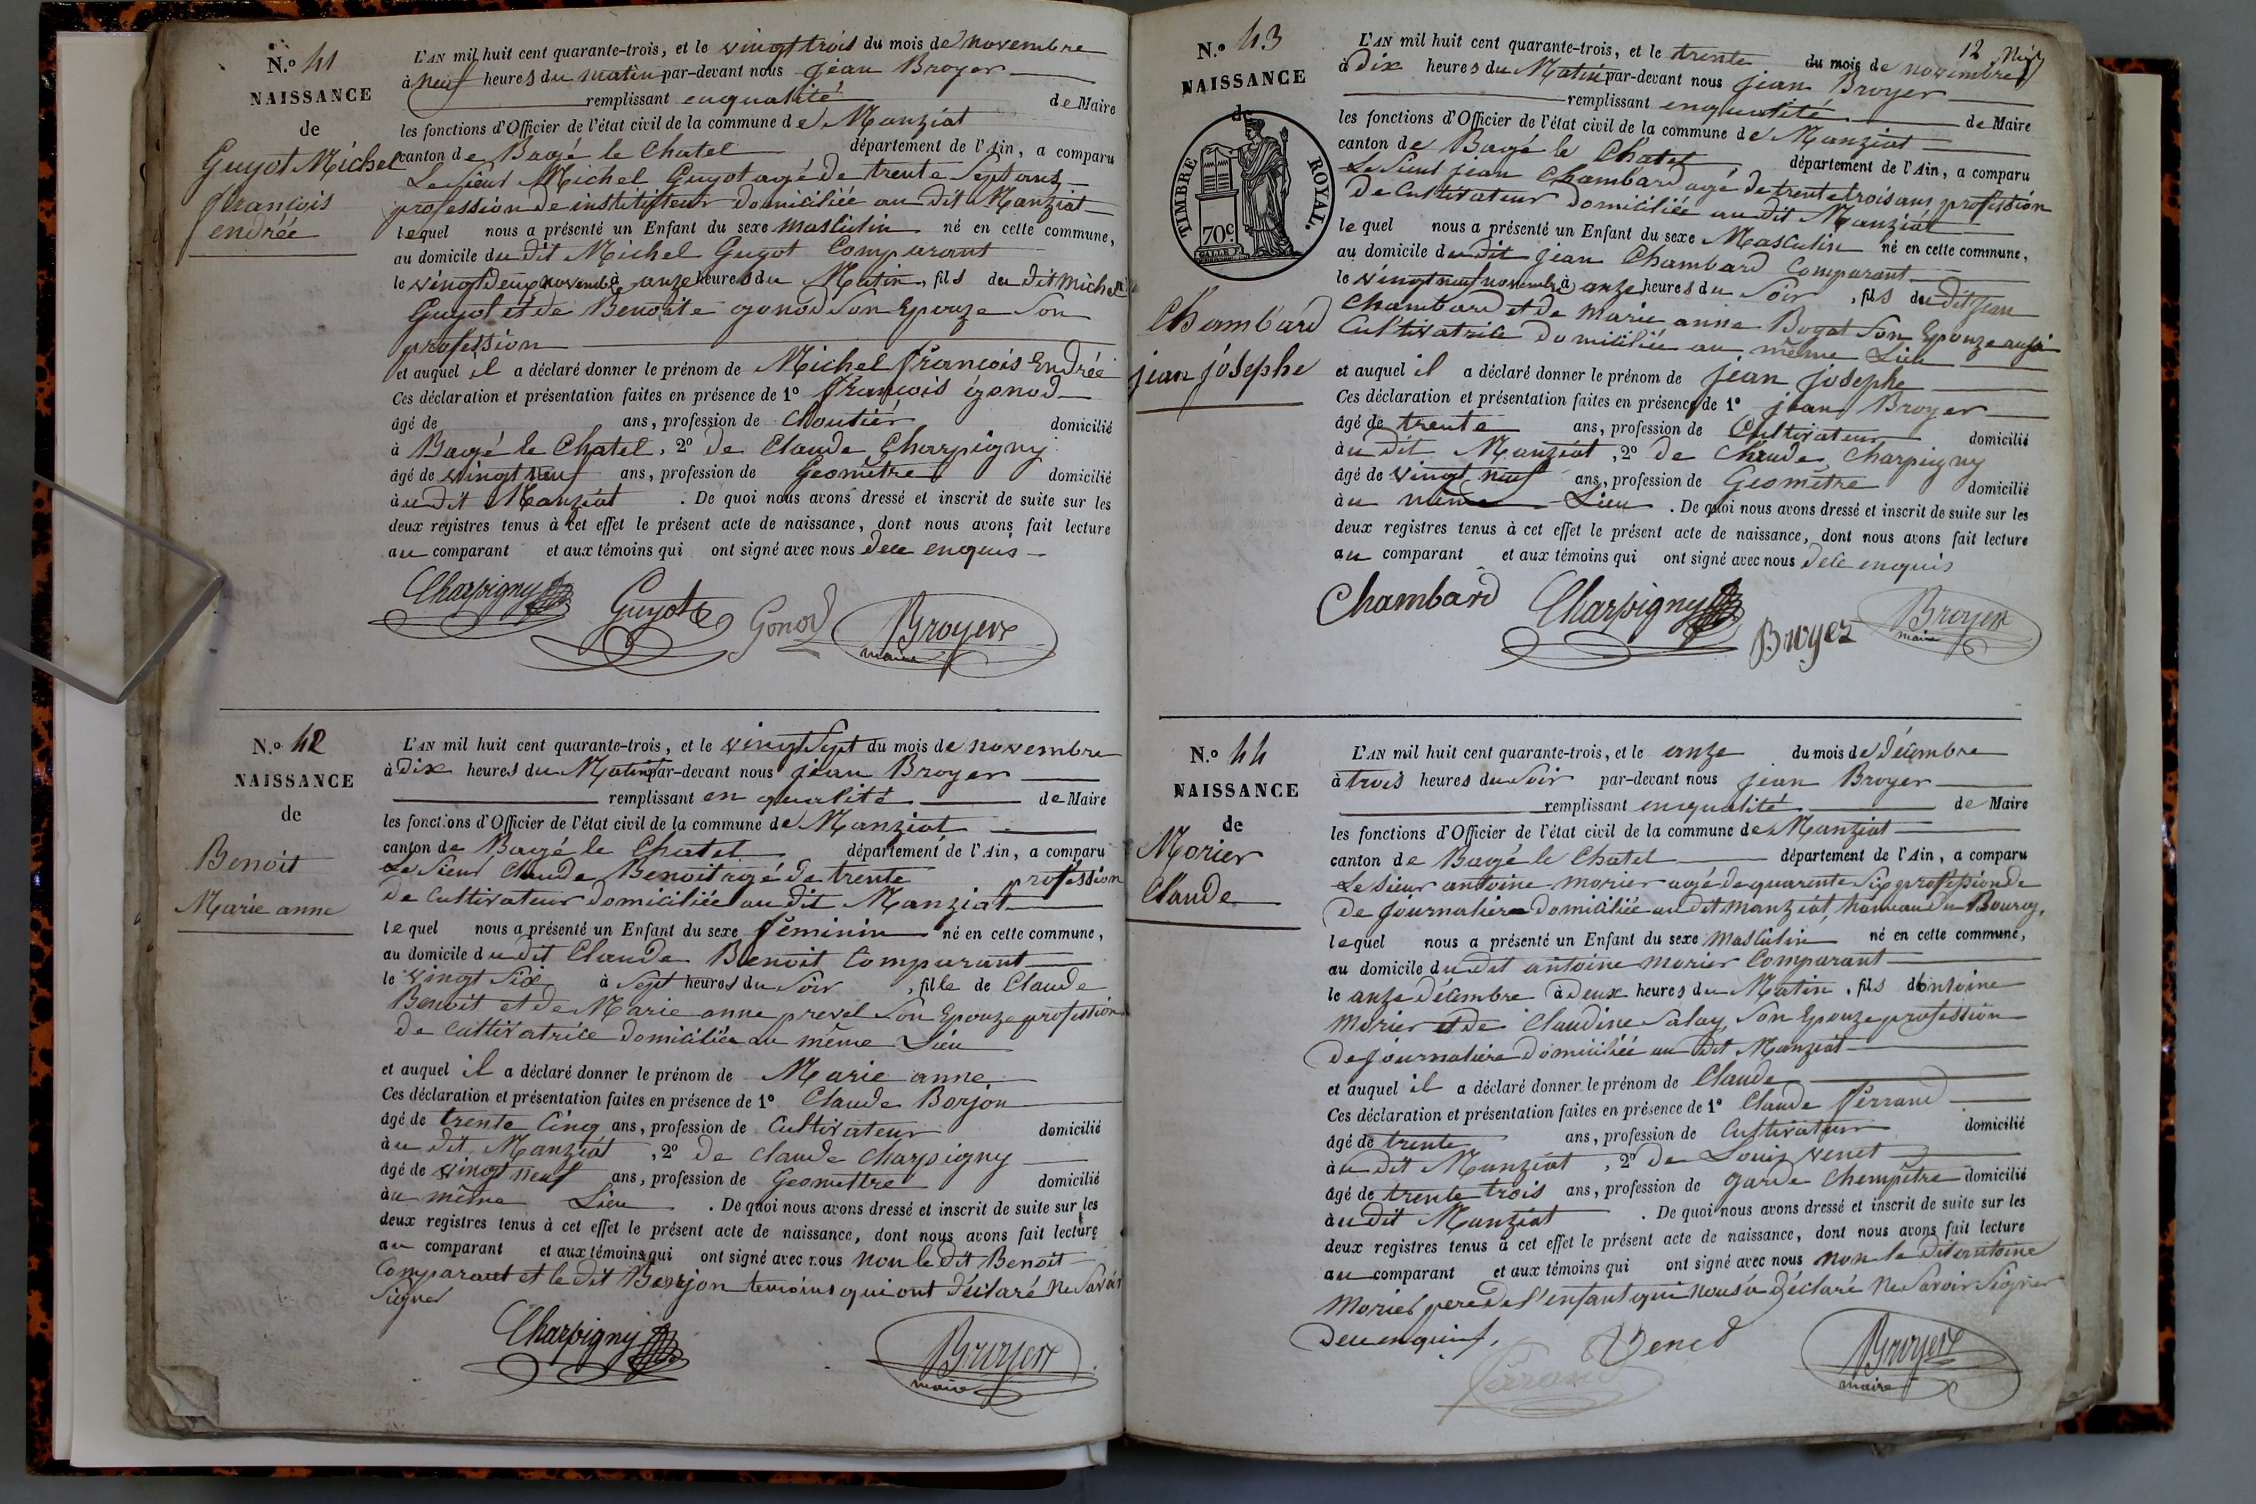 N.º 41
NAISSANCE
de
Guyot Michel
françois
endrée
L'AN mil huit cent quarante-trois, et le vingt trois du mois de novembre
à neuf heures du matin par-devant nous jean Broyer
remplissant enqualité de Maire
les fonctions d'Officier de l'état civil de la commune de Manziat
canton de Bagé le Chatel département de l'Ain, a comparu
Le Sieur Michel Guyot agé de trente Sept ans
profession de instituteur domiciliée au dit Manziat
lequel nous a présenté un Enfant du sexe masculin né en cette commune,
au domicile du dit Michel Guyot Comparant
le vingt deux novembre à anze heures du Matin, fils du dit Michel
Guyot et de Benoite gonod Son Epouze Son
profession
et auquel il a déclaré donner le prénom de Michel françois Endrée
Ces déclaration et présentation faites en présence de 1º françois gonod
âgé de ans, profession de Cloutier domicilié
à Bagé le Chatel, 2º de Claude Charpigny
âgé de vingt neuf ans, profession de Geomêtre domicilié
àu dit Manziat . De quoi nous avons dressé et inscrit de suite sur les
deux registres tenus à cet effet le présent acte de naissance, dont nous avons fait lecture
au comparant et aux témoins qui ont signé avec nous dece enquis
Charpigny Guyot Gonod Broyer
maire
N.º 42
NAISSANCE
de
Benoit
Marie anne
L'AN mil huit cent quarante-trois, et le vingt Sept du mois de novembre
à Dix heures du Matin par-devant nous jean Broyer
remplissant en qualité de Maire
les fonctions d'Officier de l'état civil de la commune de Manziat
canton de Bagé le Chatel département de l'Ain, a comparu
Le Sieur Claude Benoit agé de trente profession
de Cultivateur domiciliée au dit Manziat
lequel nous a présenté un Enfant du sexe féminin né en cette commune,
au domicile du dit Claude Benoit Comparant
le vingt Six à Sept heures du Soir, fille de Claude
Benoit et de Marie anne prevel Son Epouze profession
de cultivatrice domiciliée au même Lieu
et auquel il a déclaré donner le prénom de Marie anne
Ces déclaration et présentation faites en présence de 1º Claude Borjon
âgé de trente Cinq ans, profession de Cultivateur domicilié
àu dit Manziat, 2º de Claude Charpigny
âgé de vingt neuf ans, profession de Geomettre domicilié
àu même Lieu . De quoi nous avons dressé et inscrit de suite sur les
deux registres tenus à cet effet le présent acte de naissance, dont nous avons fait lecture
au comparant et aux témoins qui ont signé avec nous non le dit Benoit
Comparant et le dit Borjon temoins qui ont déclaré ne Savoir
Signer
Charpigny Broyer
maire
12
N.º 43
NAISSANCE
de
TIMBRE ROYAL.
70c.
Chambard
jean jósephe
L'AN mil huit cent quarante-trois, et le trente du mois de novembre
à dix heures du Matin par-devant nous jean Broyer
remplissant enqualité de Maire
les fonctions d'Officier de l'état civil de la commune de Manziat
canton de Bagé le Chatel département de l'Ain, a comparu
Le Sieur jean Chambard agé de trente trois ans profession
De Cultivateur domiciliée au dit Manziat
lequel nous a présenté un Enfant du sexe Masculin né en cette commune,
au domicile du dit jean Chambard Comparant
le vingt neuf novembre à anze heures du Soir, fils du dit jean
Chambard et de Marie anne Boyat Son Epouze aussi
Cultivatrice domiciliée au même Lieu
et auquel il a déclaré donner le prénom de jean josephe
Ces déclaration et présentation faites en présence de 1º jean Broyer
âgé de trente ans, profession de Cultivateur domicilié
àu dit Manziat, 2º de Claude Charpigny
âgé de vingt neuf ans, profession de Geomêtre domicilié
àu même Lieu . De quoi nous avons dressé et inscrit de suite sur les
deux registres tenus à cet effet le présent acte de naissance, dont nous avons fait lecture
au comparant et aux témoins qui ont signé avec nous dece enquis
Chambard Charpigny Broyer Broyer
maire
N.º 44
NAISSANCE
de
Morier
Claude
L'AN mil huit cent quarante-trois, et le anze du mois de décembre
à trois heures du Soir par-devant nous jean Broyer
remplissant enqualité de Maire
les fonctions d'Officier de l'état civil de la commune de Manziat
canton de Bagé le Chatel département de l'Ain, a comparu
Le Sieur antoine morier agé de quarente Six profession de
de journalière domiciliée au dit manziat, hameau du Bourg,
lequel nous a présenté un Enfant du sexe masculin né en cette commune,
au domicile du dit antoine morier Comparant
le anze décembre à deux heures du Matin, fils d'antoine
morier et de Claudine Salay Son Epouze profession
de journaliere domiciliée au dit Manziat
et auquel il a déclaré donner le prénom de Claude
Ces déclaration et présentation faites en présence de 1º Claude ferrand
âgé de trente ans, profession de Cultivateur domicilié
àu dit Manziat, 2º de Louis Venet
âgé de trente trois ans, profession de garde Chempêtre domicilié
àu dit Manziat . De quoi nous avons dressé et inscrit de suite sur les
deux registres tenus à cet effet le présent acte de naissance, dont nous avons fait lecture
au comparant et aux témoins qui ont signé avec nous non le dit antoine
Morier pere de l'enfant qui nous a déclaré ne Savoir Signer
de ce enquis,
ferrand Venet Broyer
maire